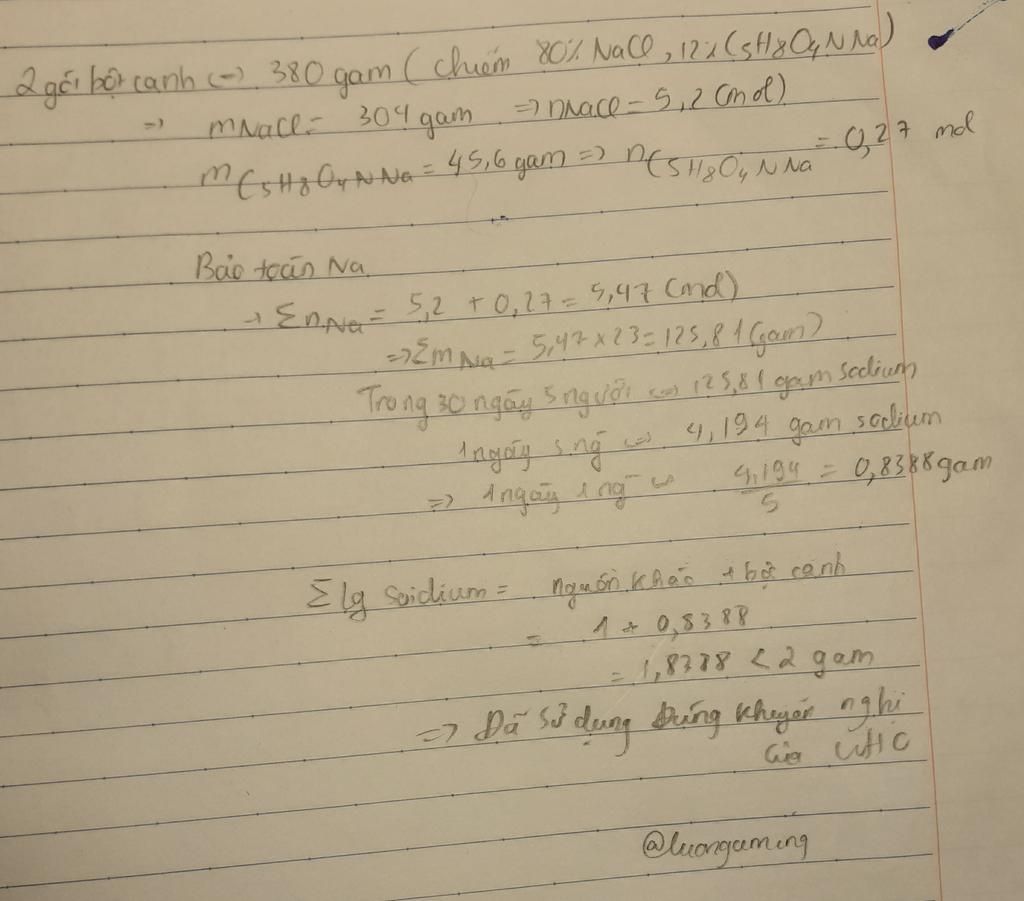 2 gói bột canh <-> 380 gam ( chiếm 80% NaCl , 12% C5H8O4NNa)
=> mNaCl = 304 gam => nNaCl = 5,2 (mol)
mC5H8O4NNa = 45,6 gam => nC5H8O4NNa = 0,27 mol
Bảo toàn Na
→ ΣnNa = 5,2 + 0,27 = 5,47 (mol)
=> ΣmNa = 5,47 x 23 = 125,81 (gam)
Trong 30 ngày 5 người <=> 125,81 gam sodium
1 ngày 5 ng <=> 4,194 gam sodium
=> 1 ngày 1 ng <=> 4,194/5 = 0,8388 gam
Σ lg soidium = nguồn khác + bột canh
= 1 + 0,8388
= 1,8388 < 2 gam
=> Đã sử dụng Đúng khuyến nghị
của WHO
@luongaming